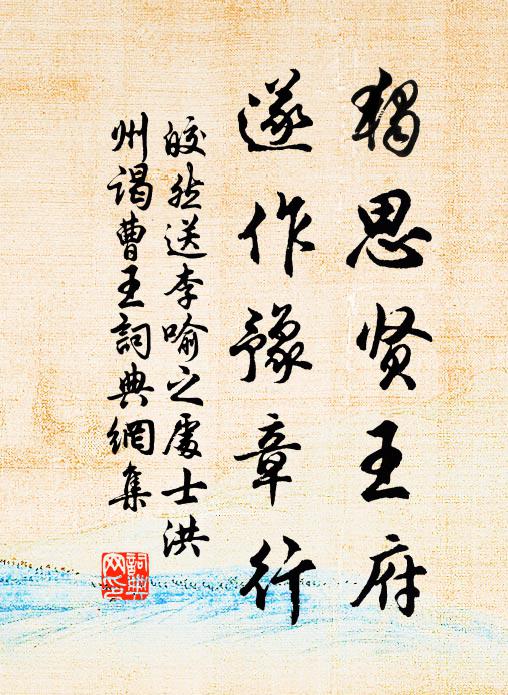 獨思贤王府
遂作豫章行
皎然送李喻之處士洪
州謁曹王詞典網集